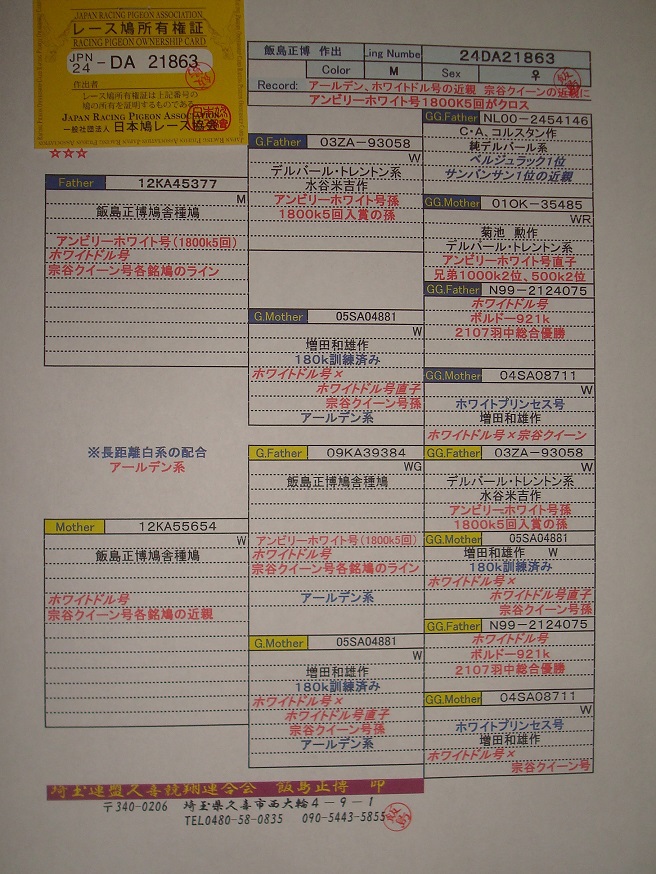 JAPAN RACING PIGEON ASSOCIATION
レース鳩所有権証
RACING PIGEON OWNERSHIP CARD
JPN
24 -DA 21863
作出者
レース鳩所有権証は上記番号の
鳩の所有を証明するものである
JAPAN RACING PIGEON ASSOCIATION
一般社団法人 日本鳩レース協会
☆☆☆
飯島正博 作出 Ling Numbe 24DA21863
Color M Sex ♀
Record: アールデン、ホワイトドル号の近親 宗谷クイーンの近親に
アンビリーホワイト号1800K5回がクロス
Father 12KA45377
M
飯島正博鳩舎種鳩
アンビリーホワイト号(1800k5回)
ホワイトドル号
宗谷クイーン号各銘鳩のライン
※長距離白系の配合
アールデン系
Mother 12KA55654
W
飯島正博鳩舎種鳩
ホワイトドル号
宗谷クイーン号各銘鳩の近親
G.Father 03ZA-93058
W
デルバール・トレントン系
水谷米吉作
アンビリーホワイト号孫
1800k5回入賞の孫
G.Mother 05SA04881
W
増田和雄作
180k訓練済み
ホワイトドル号×
ホワイトドル号直子
宗谷クイーン号孫
アールデン系
G.Father 09KA39384
WG
飯島正博鳩舎種鳩
アンビリーホワイト号(1800k5回)
ホワイトドル号
宗谷クイーン号各銘鳩のライン
アールデン系
G.Mother 05SA04881
W
増田和雄作
180k訓練済み
ホワイトドル号×
ホワイトドル号直子
宗谷クイーン号孫
アールデン系
GG.Father NL00-2454146
C・A、コルスタン作
純デルバール系
ベルジュラック1位
サンバンサン1位の近親
GG.Mother 01OK-35485
WR
菊池 勲作
デルバール・トレントン系
アンビリーホワイト号直子
兄弟1000k2位、500k2位
GG.Father N99-2124075
ホワイトドル号
ボルドー921k
2107羽中総合優勝
GG.Mother 04SA08711
W
ホワイトプリンセス号
増田和雄作
ホワイトドル号×宗谷クイーン
GG.Father 03ZA-93058
W
デルバール・トレントン系
水谷米吉作
アンビリーホワイト号孫
1800k5回入賞の孫
GG.Mother 05SA04881
増田和雄作 W
180k訓練済み
ホワイトドル号×
ホワイトドル号直子
宗谷クイーン号孫
GG.Father N99-2124075
ホワイトドル号
ボルドー921k
2107羽中総合優勝
GG.Mother 04SA08711
W
ホワイトプリンセス号
増田和雄作
ホワイトドル号×
宗谷クイーン号
埼玉連盟久喜競翔連合会 飯島正博 印
〒340-0206 埼玉県久喜市西大輪4-9-1
TEL0480-58-0835 090-5443-5855